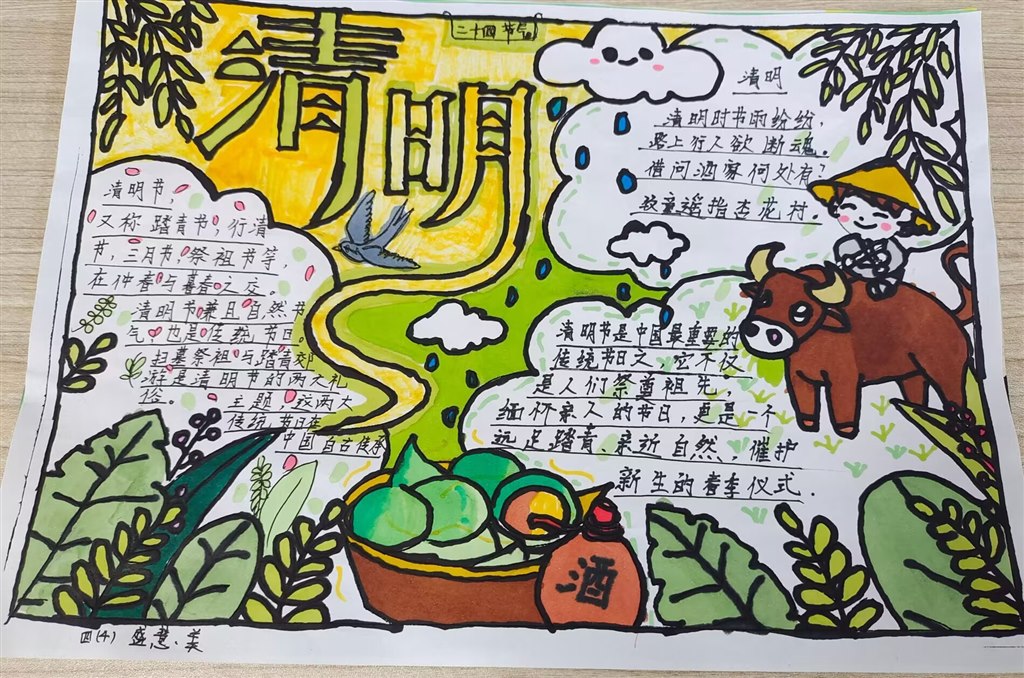 二十四节气
清明
清明节，
又称踏青节，行清
节，三月节，祭祖节等，
在仲春与暮春之交。
清明节兼且自然节
气，也是传统节日。
扫墓祭祖与踏青郊
游是清明节的两大礼
俗。 主题，这两大
传统节日在
中国自古传承
清明
清明时节雨纷纷，
路上行人欲断魂。
借问酒家何处有？
牧童遥指杏花村。
清明节是中国最重要的
传统节日之，它不仅
是人们祭奠祖先，
缅怀亲人的节日，更是一个
远足踏青、亲近自然、催护
新生的春季仪式．
酒
四(4) 盛慧．美